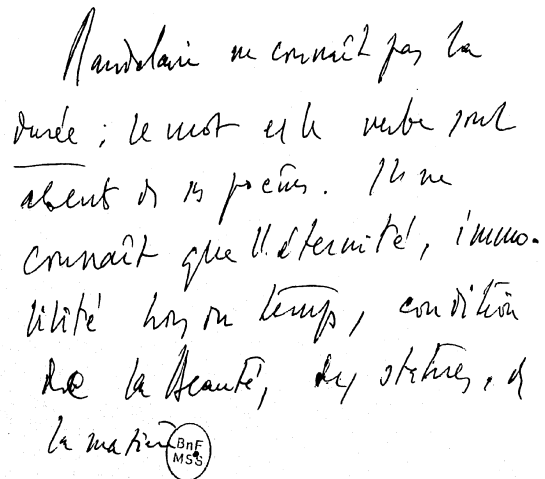 Baudelaire ne connaît pas la
durée ; le mot et le verbe sont
absents de ses poèmes. Il ne
connaît que l'éternité, immo-
bilité hors du temps, condition
de la Beauté, des statues, de
la matière
BnF
MSS